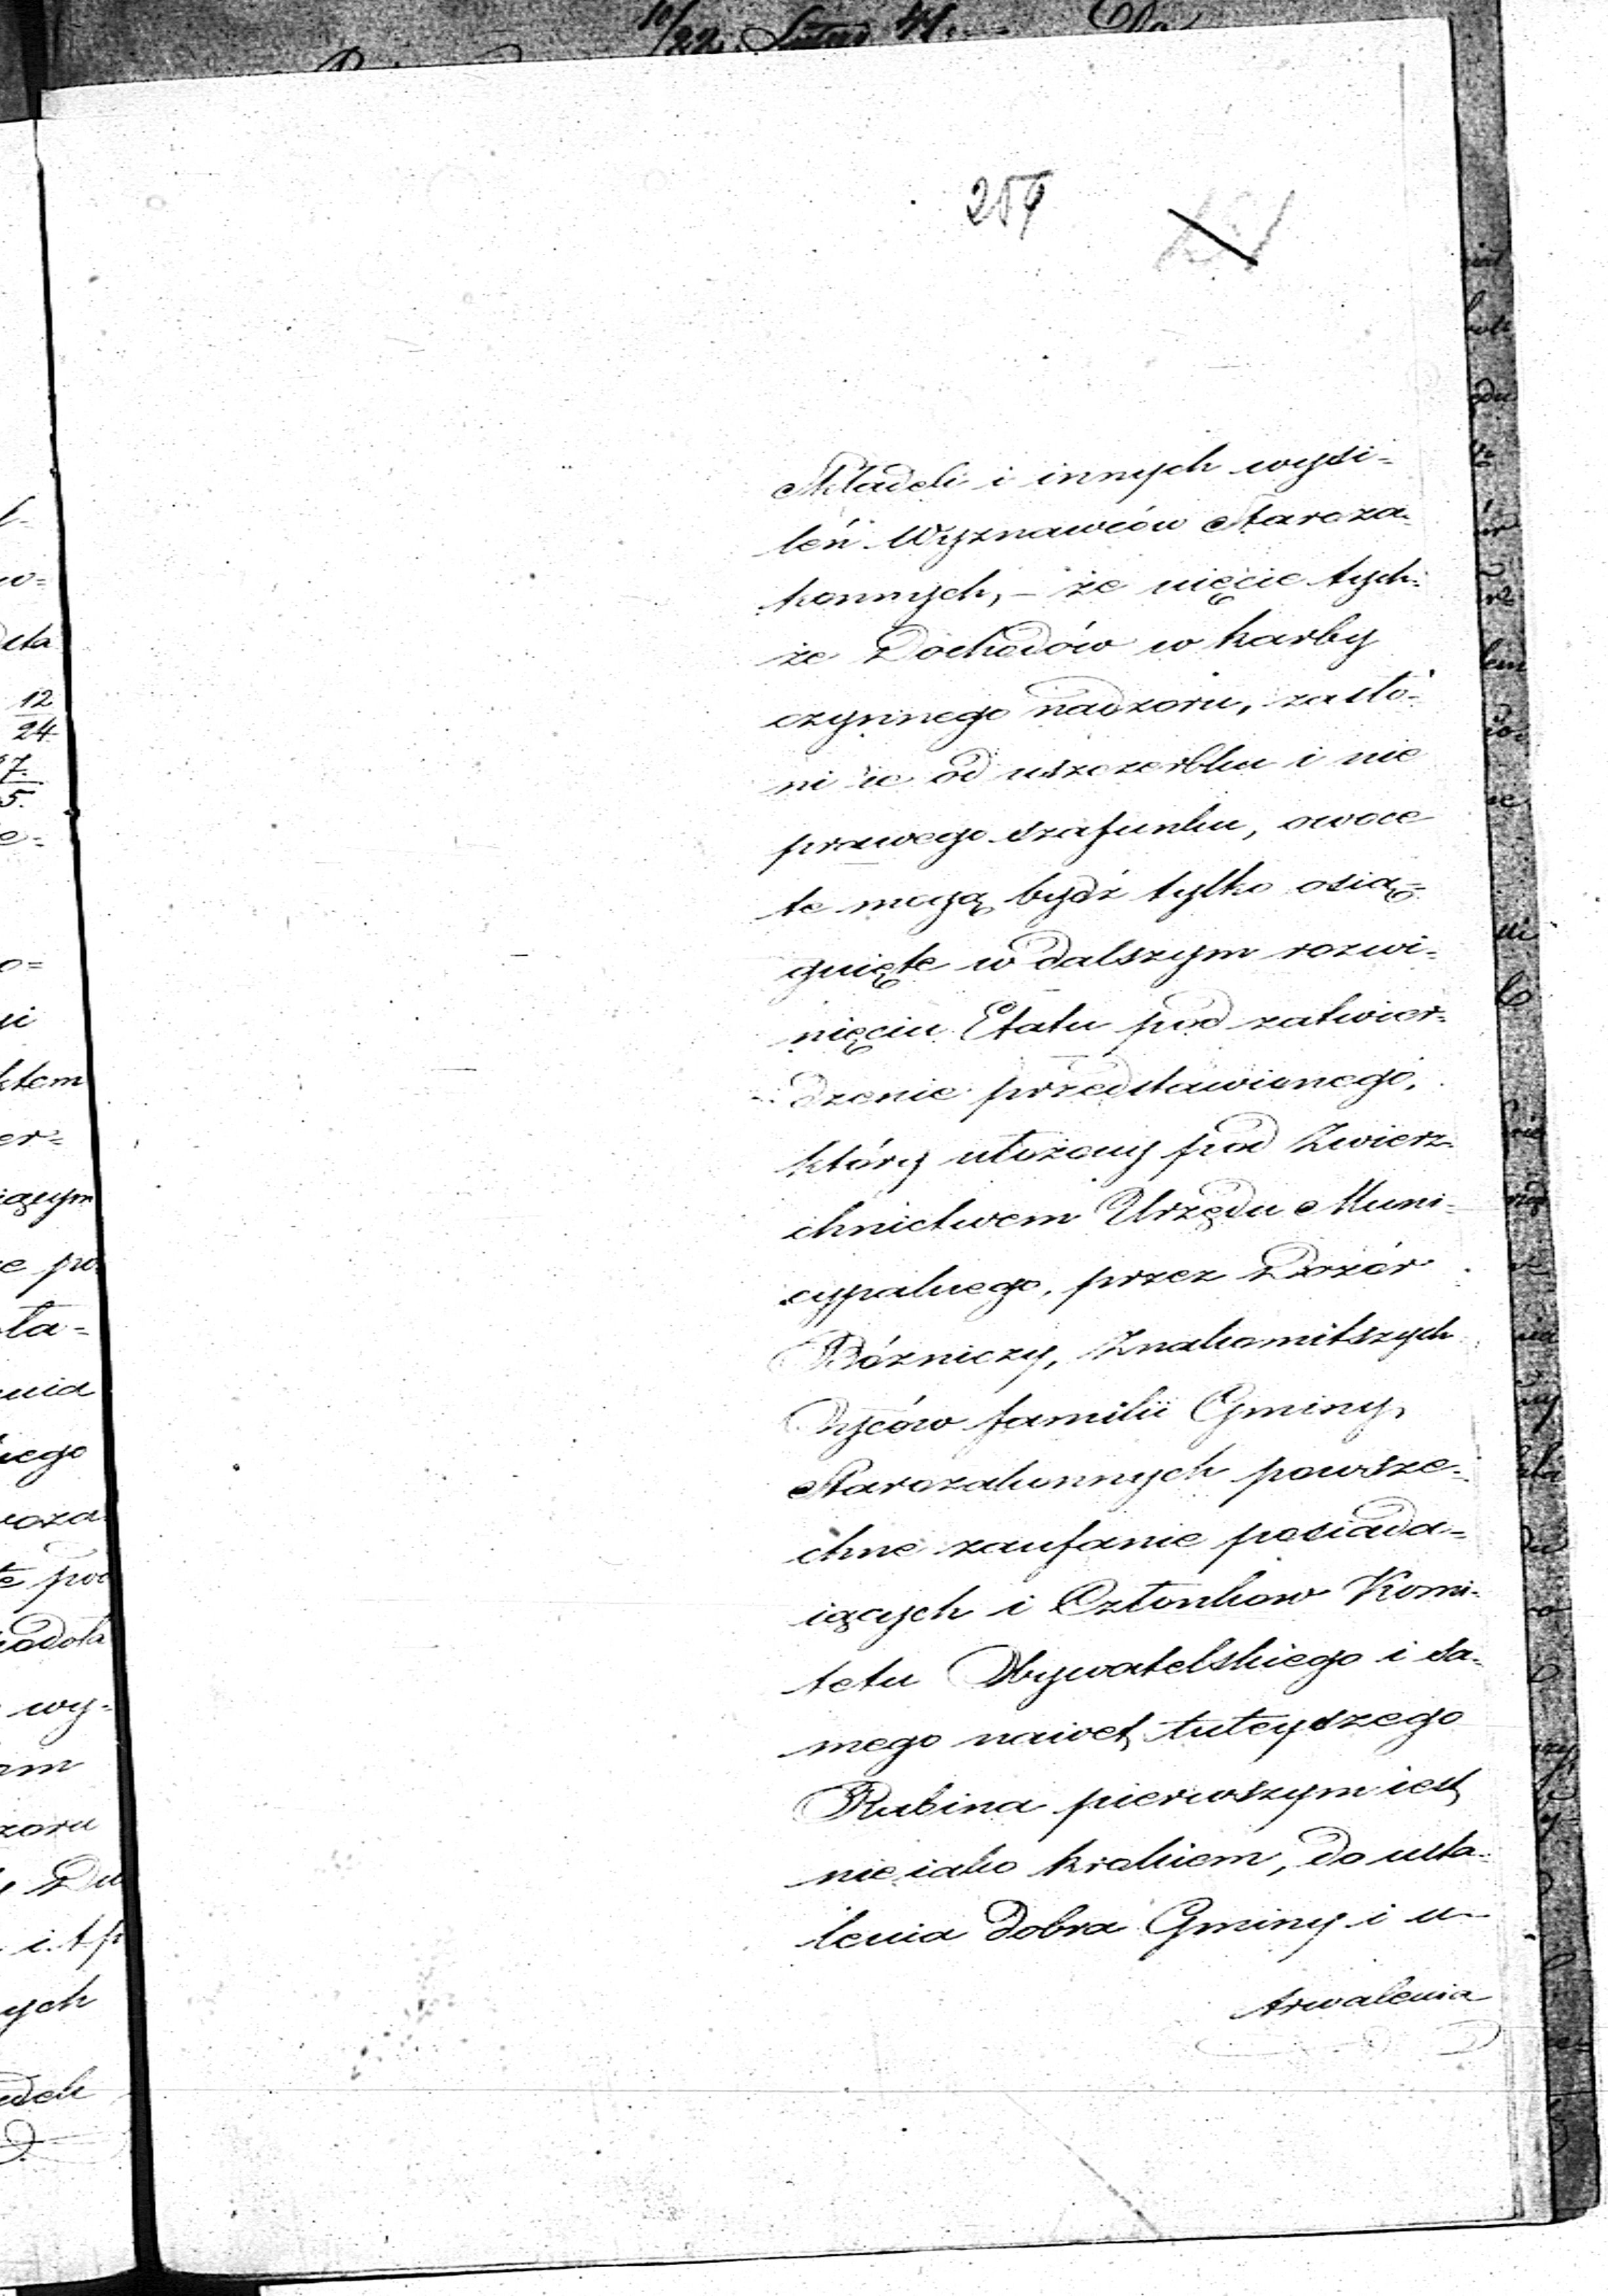 259
Składek i innych wysi=
leń Wyznawców Staroza-
konnych, – że uięcie tych-
że Dochodów w karby
czynnego nadzoru, zasło-
ni ie od uszczerbku i nie
prawego szafunku, owoce
te mogą bydź tylko osią=
gnięte w dalszym rozwi-
nięciu Etatu pod zatwier-
dzenie przedstawionego,
który ułożony pod Zwierz-
chnictwem Urzędu Muni-
cypalnego, przez Dozór
Bóżniczy, Znakomitszych
Oyców familii Gminy
Starozakonnych powsze-
chne zaufanie posiada=
iących i Członkow Komi-
tetu Obywatelskiego i sa-
mego nawet tuteyszego
Rabina pierwszym iest
nieiako krokiem, do usta-
lenia dobra Gminy i u-
trwalenia